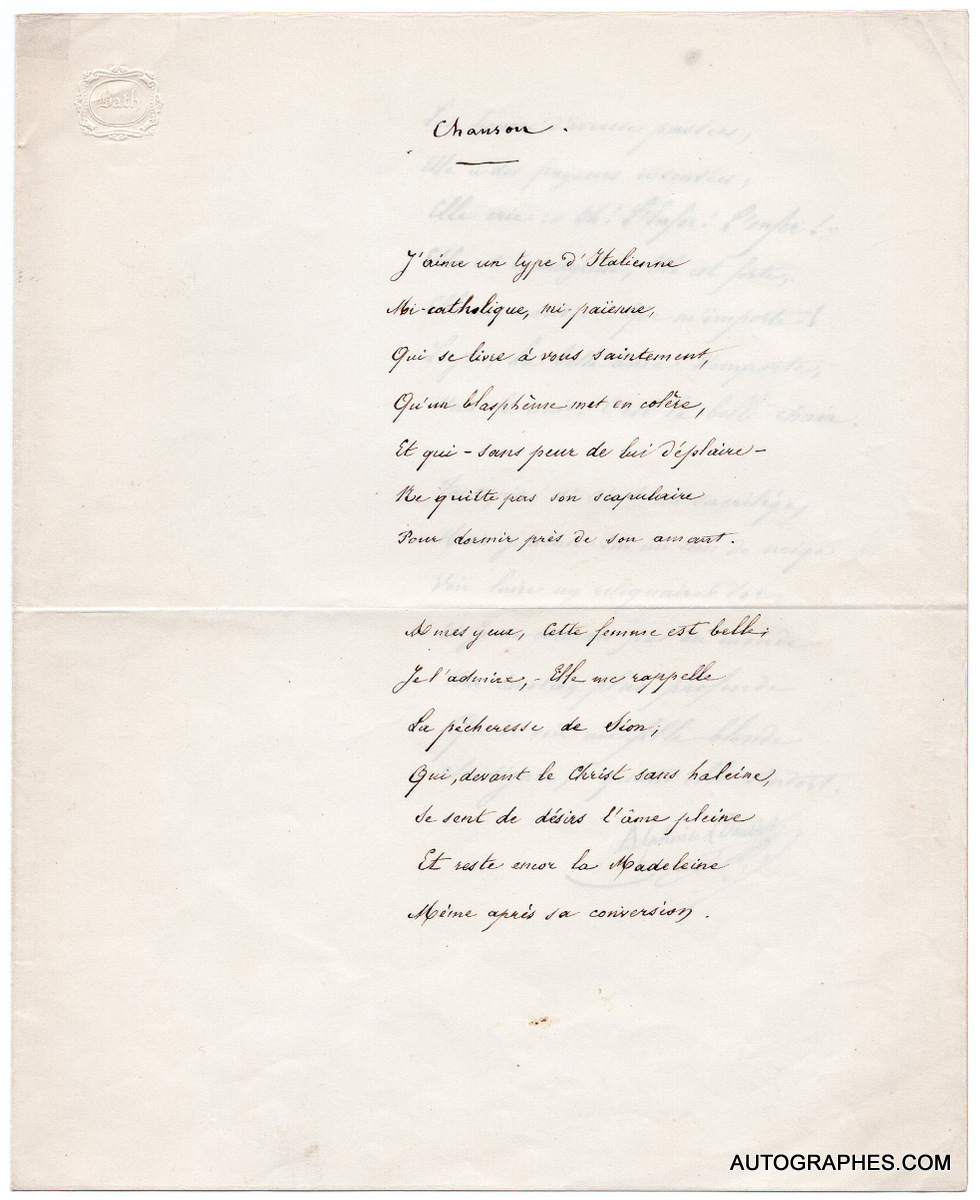 Bath
Chanson.
J'aime un type d'Italienne
Mi-catholique, mi-païenne,
Qui se livre à vous saintement,
Qu'un blasphème met en colère,
Et qui - sans peur de lui déplaire -
Ne quitte pas son scapulaire
Pour dormir près de son amant.
A mes yeux, cette femme est belle;
Je l'admire, - Elle me rappelle
La pécheresse de Sion;
Qui, devant le Christ sans haleine,
Se sent de désirs l'âme pleine
Et reste encor la Madeleine
Même après sa conversion.
AUTOGRAPHES.COM